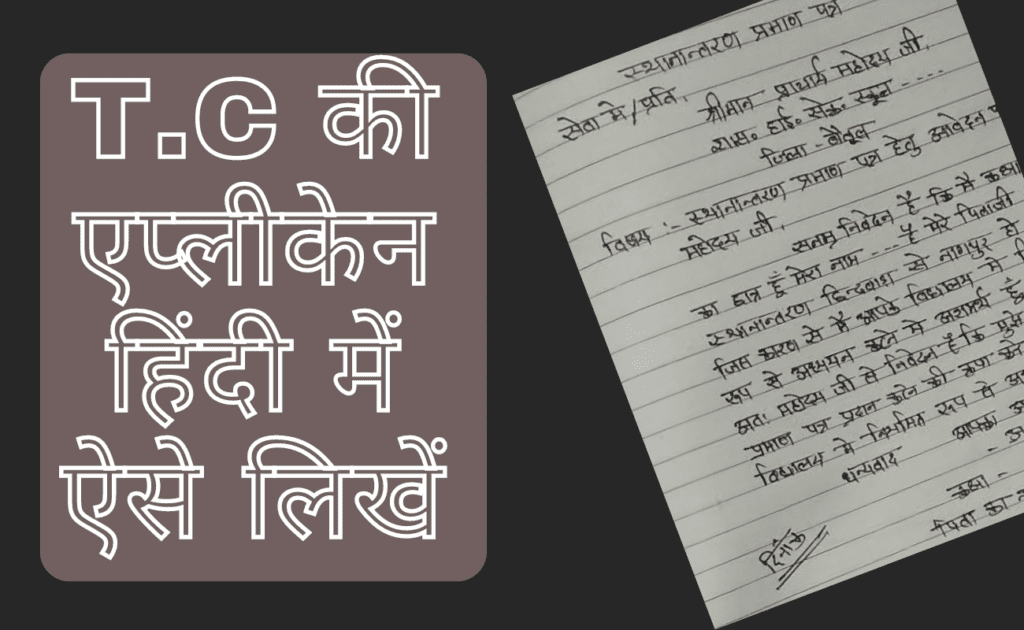 T.C की
एप्लीकेन
हिंदी में
ऐसे लिखें
स्थानान्तरण प्रमाण पत्र
सेवा मे/प्रति,
श्रीमान प्राचार्य महोदय जी,
शास० हाई० सेके० स्कूल - ....
जिला - बैतूल
विषय :- स्थानान्तरण प्रमाण पत्र हेतु आवेदन
महोदय जी,
सनम्र निवेदन है कि मै कक्षा
का छात्र हूँ मेरा नाम - ... है मेरे पिताजी
स्थानान्तरण छिन्दवाडा से नागपुर हो
जिस कारण से मैं आपके विद्यालय मे
रूप से अध्ययन करने मे असमर्थ हूँ
अतः महोदय जी से निवेदन है कि मुझे
प्रमाण पत्र प्रदान करने की कृपा करे
विद्यालय मे नियमित रूप से
धन्यवाद
आपका
कक्षा -
पिता का
दिनाँक